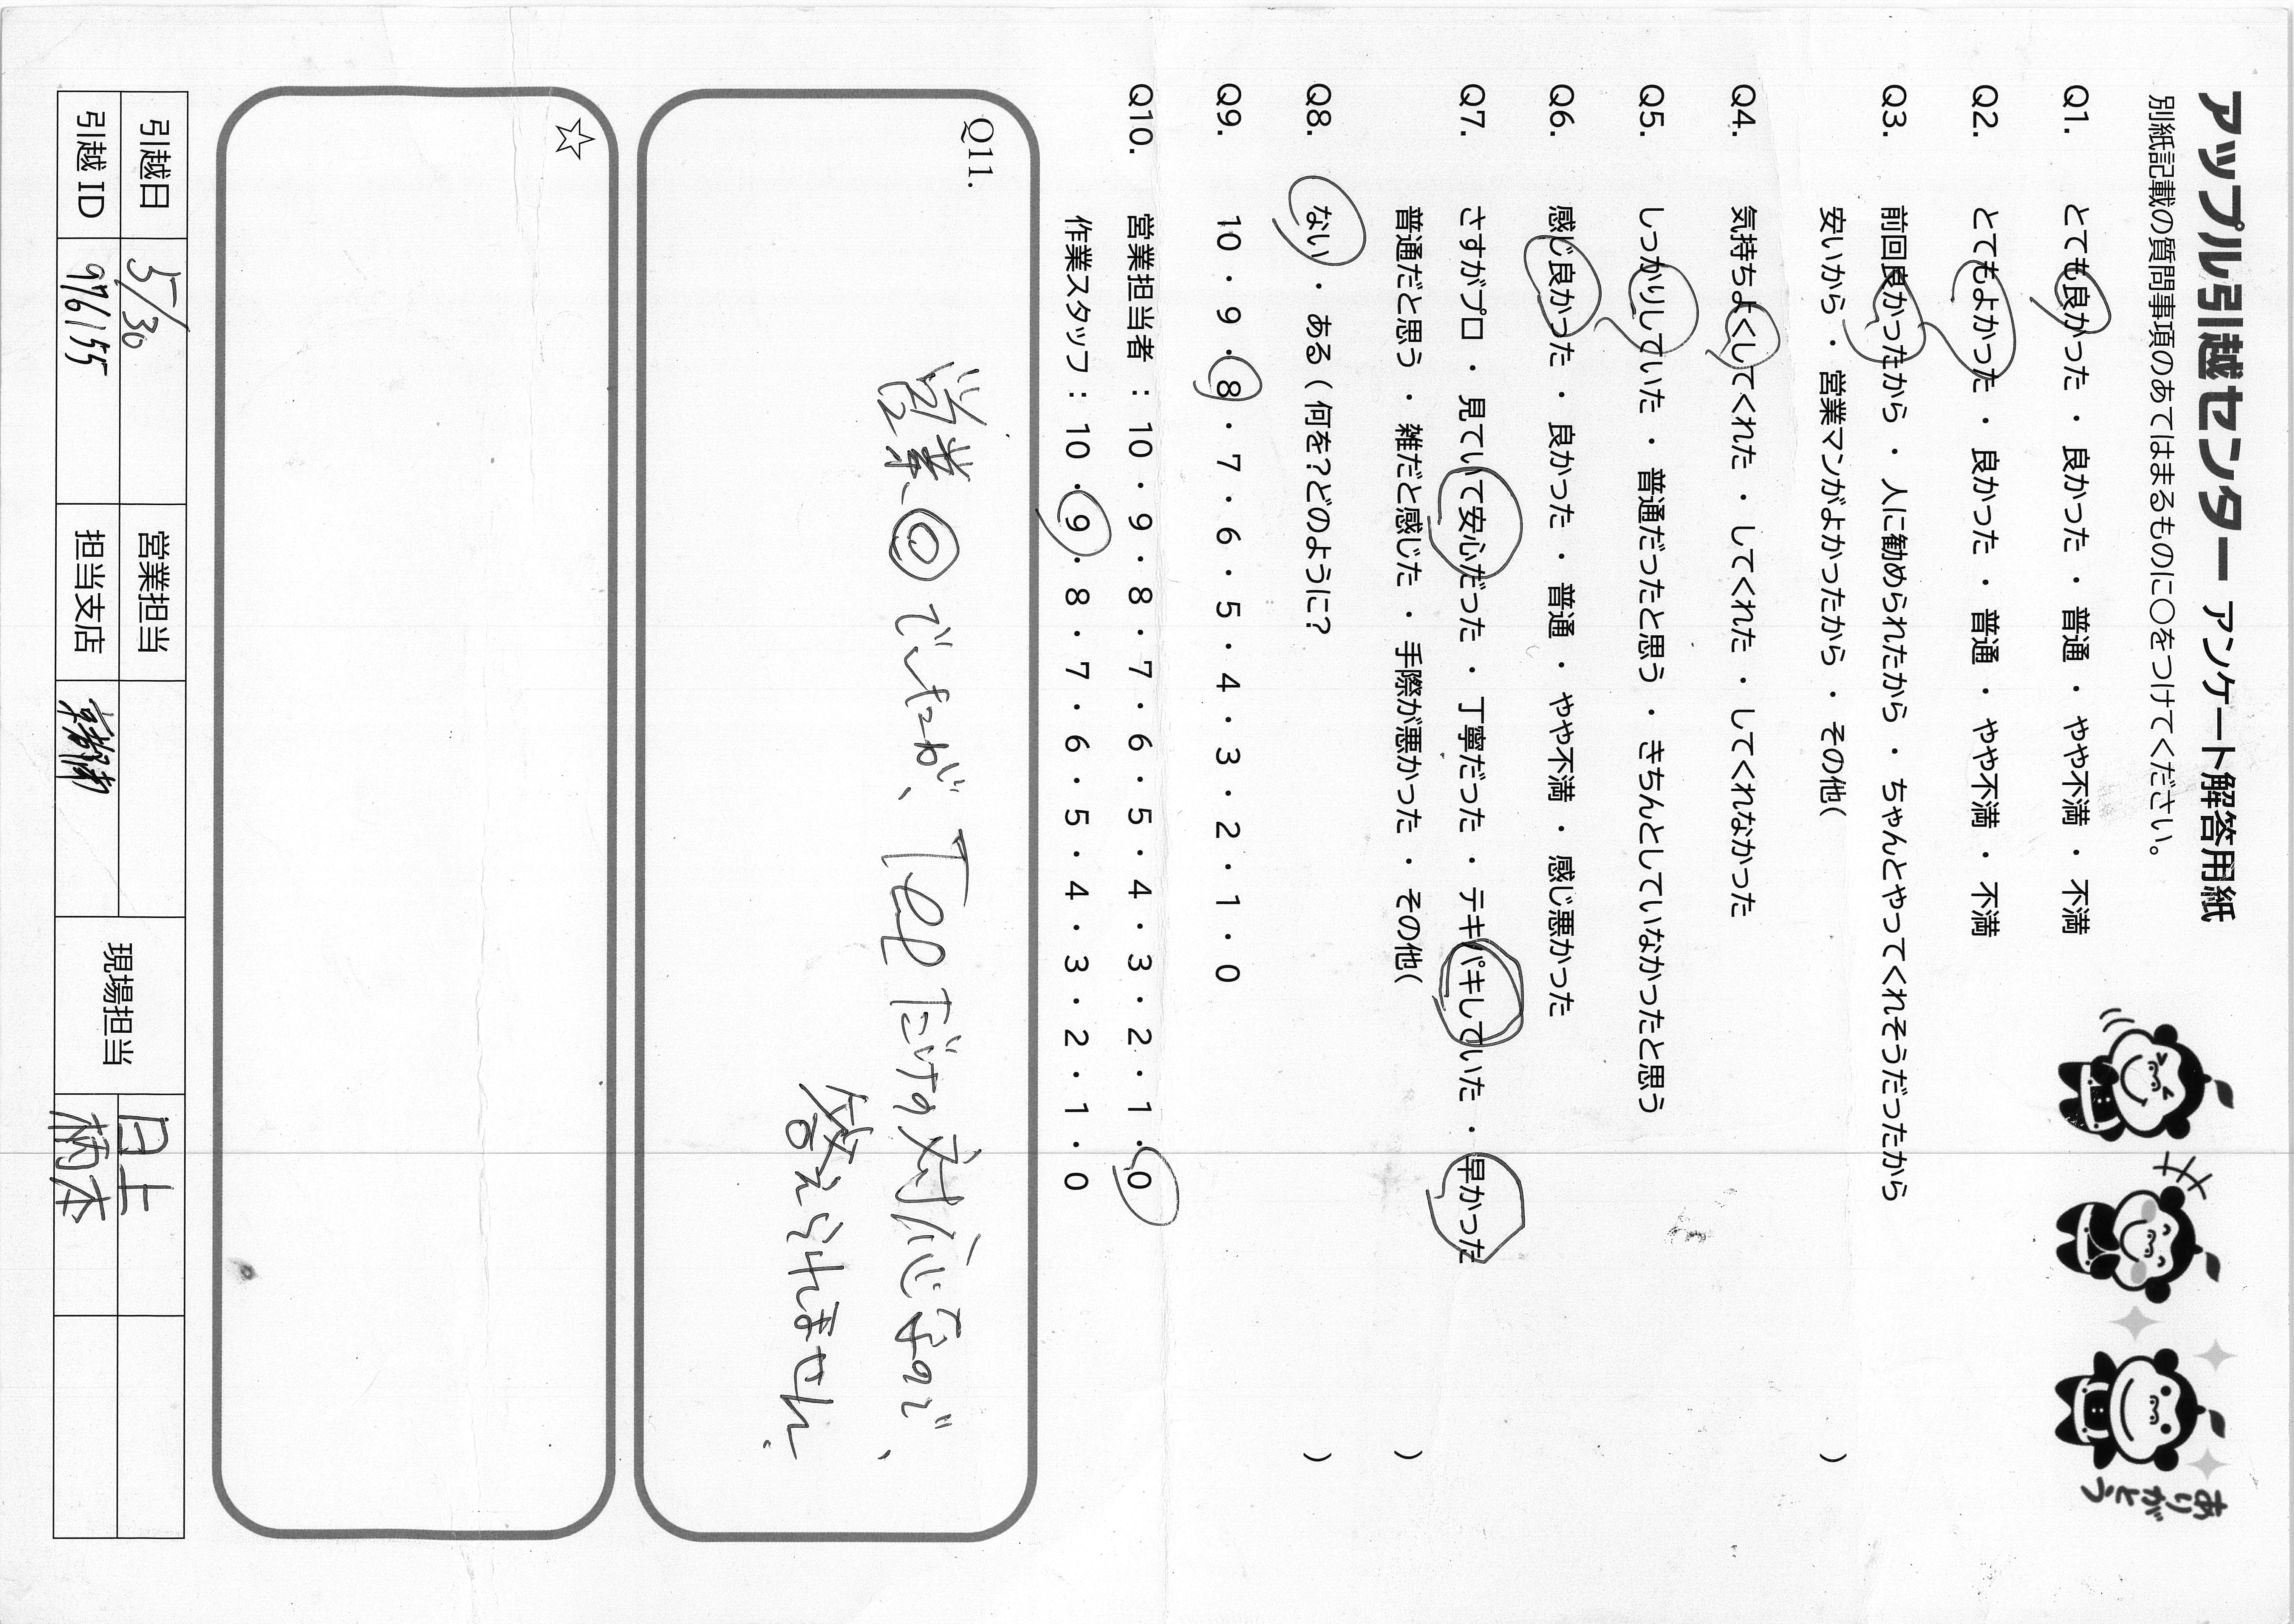 アップル引越センター アンケート解答用紙
別紙記載の質問事項のあてはまるものに〇をつけてください。
Q1. とても良かった ・ 良かった ・ 普通 ・ やや不満 ・ 不満
Q2. とてもよかった ・ 良かった ・ 普通 ・ やや不満 ・ 不満
Q3. 前回良かったから ・ 人に勧められたから ・ ちゃんとやってくれそうだったから
安いから ・ 営業マンがよかったから ・ その他( )
Q4. 気持ちよくしてくれた ・ してくれた ・ してくれなかった
Q5. しっかりしていた ・ 普通だったと思う ・ きちんとしていなかったと思う
Q6. 感じ良かった ・ 良かった ・ 普通 ・ やや不満 ・ 感じ悪かった
Q7. さすがプロ ・ 見ていて安心だった ・ 丁寧だった ・ テキパキしていた ・ 早かった
普通だと思う ・ 雑だと感じた ・ 手際が悪かった ・ その他( )
Q8. ない ・ ある ( 何を？どのように？ )
Q9. 10 ・ 9 ・ 8 ・ 7 ・ 6 ・ 5 ・ 4 ・ 3 ・ 2 ・ 1 ・ 0
Q10. 営業担当者 : 10 ・ 9 ・ 8 ・ 7 ・ 6 ・ 5 ・ 4 ・ 3 ・ 2 ・ 1 ・ 0
作業スタッフ : 10 ・ 9 ・ 8 ・ 7 ・ 6 ・ 5 ・ 4 ・ 3 ・ 2 ・ 1 ・ 0
Q11.
営業、◎でしたが、Telだけの対応なので、
答えられません。
☆
引越日 5/30 営業担当 現場担当 日上
引越 ID 976155 担当支店 柄本
ありがとう